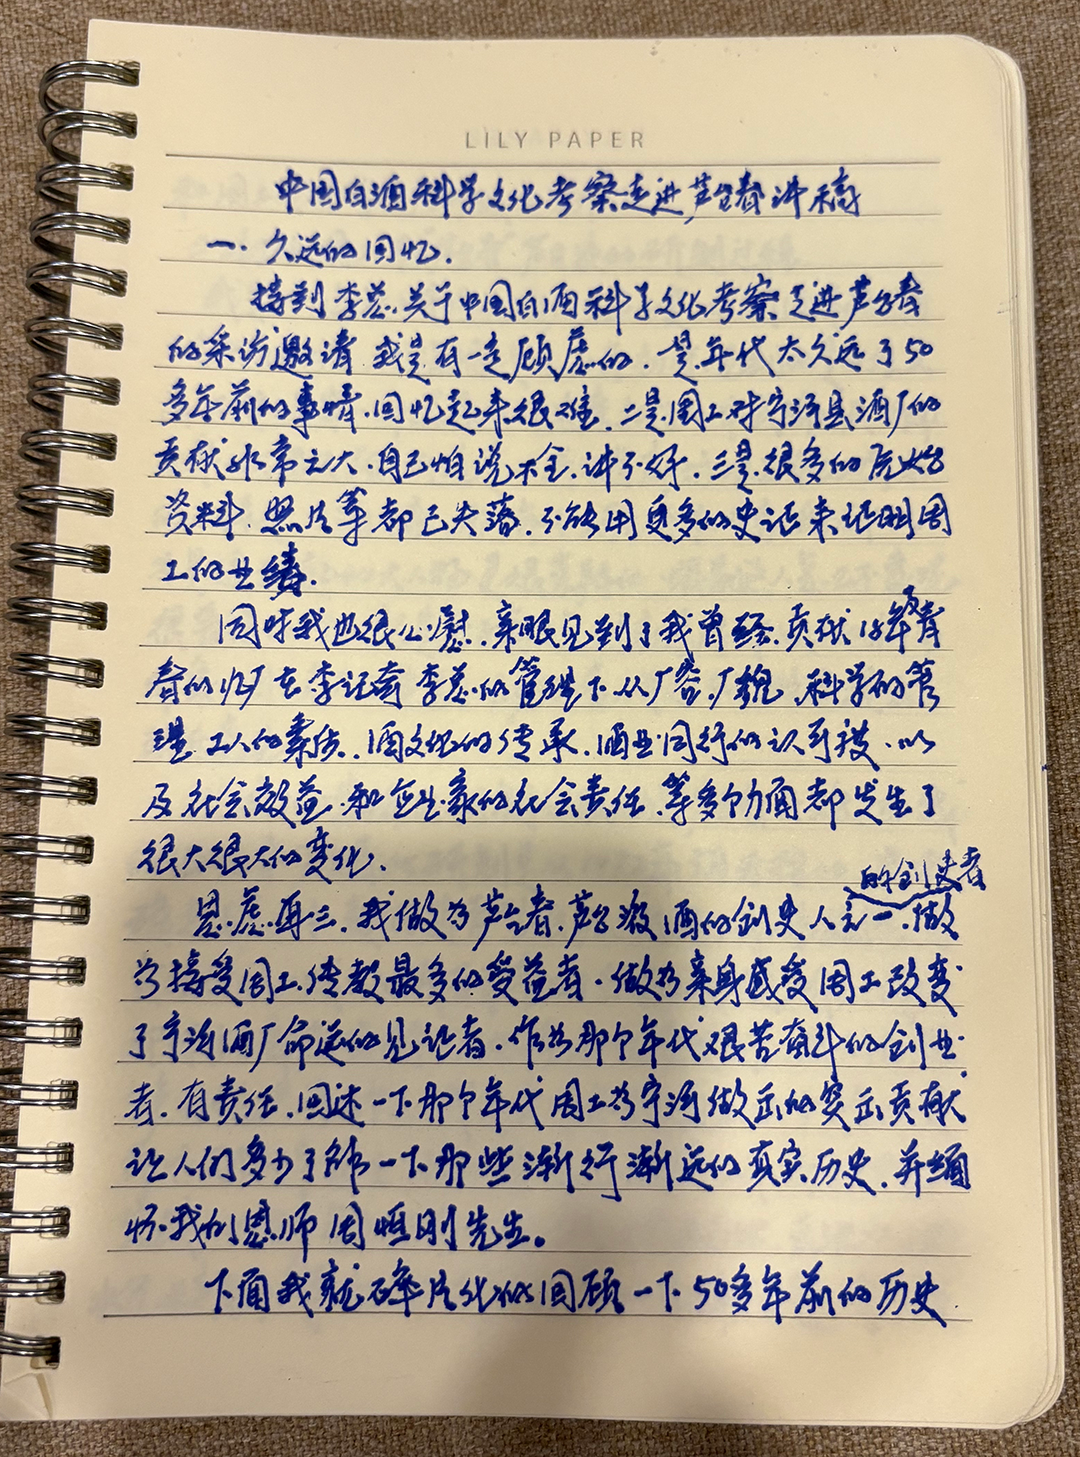 LILY PAPER
中国白酒科学文化考察走进芦台春讲稿
一. 久远的回忆.
接到李总关于中国白酒科学文化考察走进芦台春
的采访邀请 我是有一定顾虑的. 一是年代太久远了50
多年前的事情.回忆起来很难. 二是周工对宁河县酒厂的
贡献非常之大.自己怕说不全.讲不好. 三是.很多的原始
资料.照片等都已失落.不能用更多的史证来证明周
工的业绩.
同时我也很心慰.亲眼见到了我曾经贡献18年青
春的旧厂在李记者李总的管理下从厂容.厂貌.科学的管
理.工人的素质.酒文化的传承.酒业同行的认可度.以
及社会效益.和企业家的社会责任.等多个方面都发生了
很大很大的变化.
的创史者
思虑再三.我做为芦台春.芦台液酒的创史人之一.做
为接受周工传教最多的受益者.做为亲身感受周工改变
了宁河酒厂命运的见证者.作为那个年代艰苦奋斗的创业
者.有责任.回述一下那个年代周工为宁河做出的突出贡献
让人们多少了解一下那些渐行渐远的真实历史.并缅
怀我们恩师周恒刚先生。
下面我就碎片化的回顾一下50多年前的历史